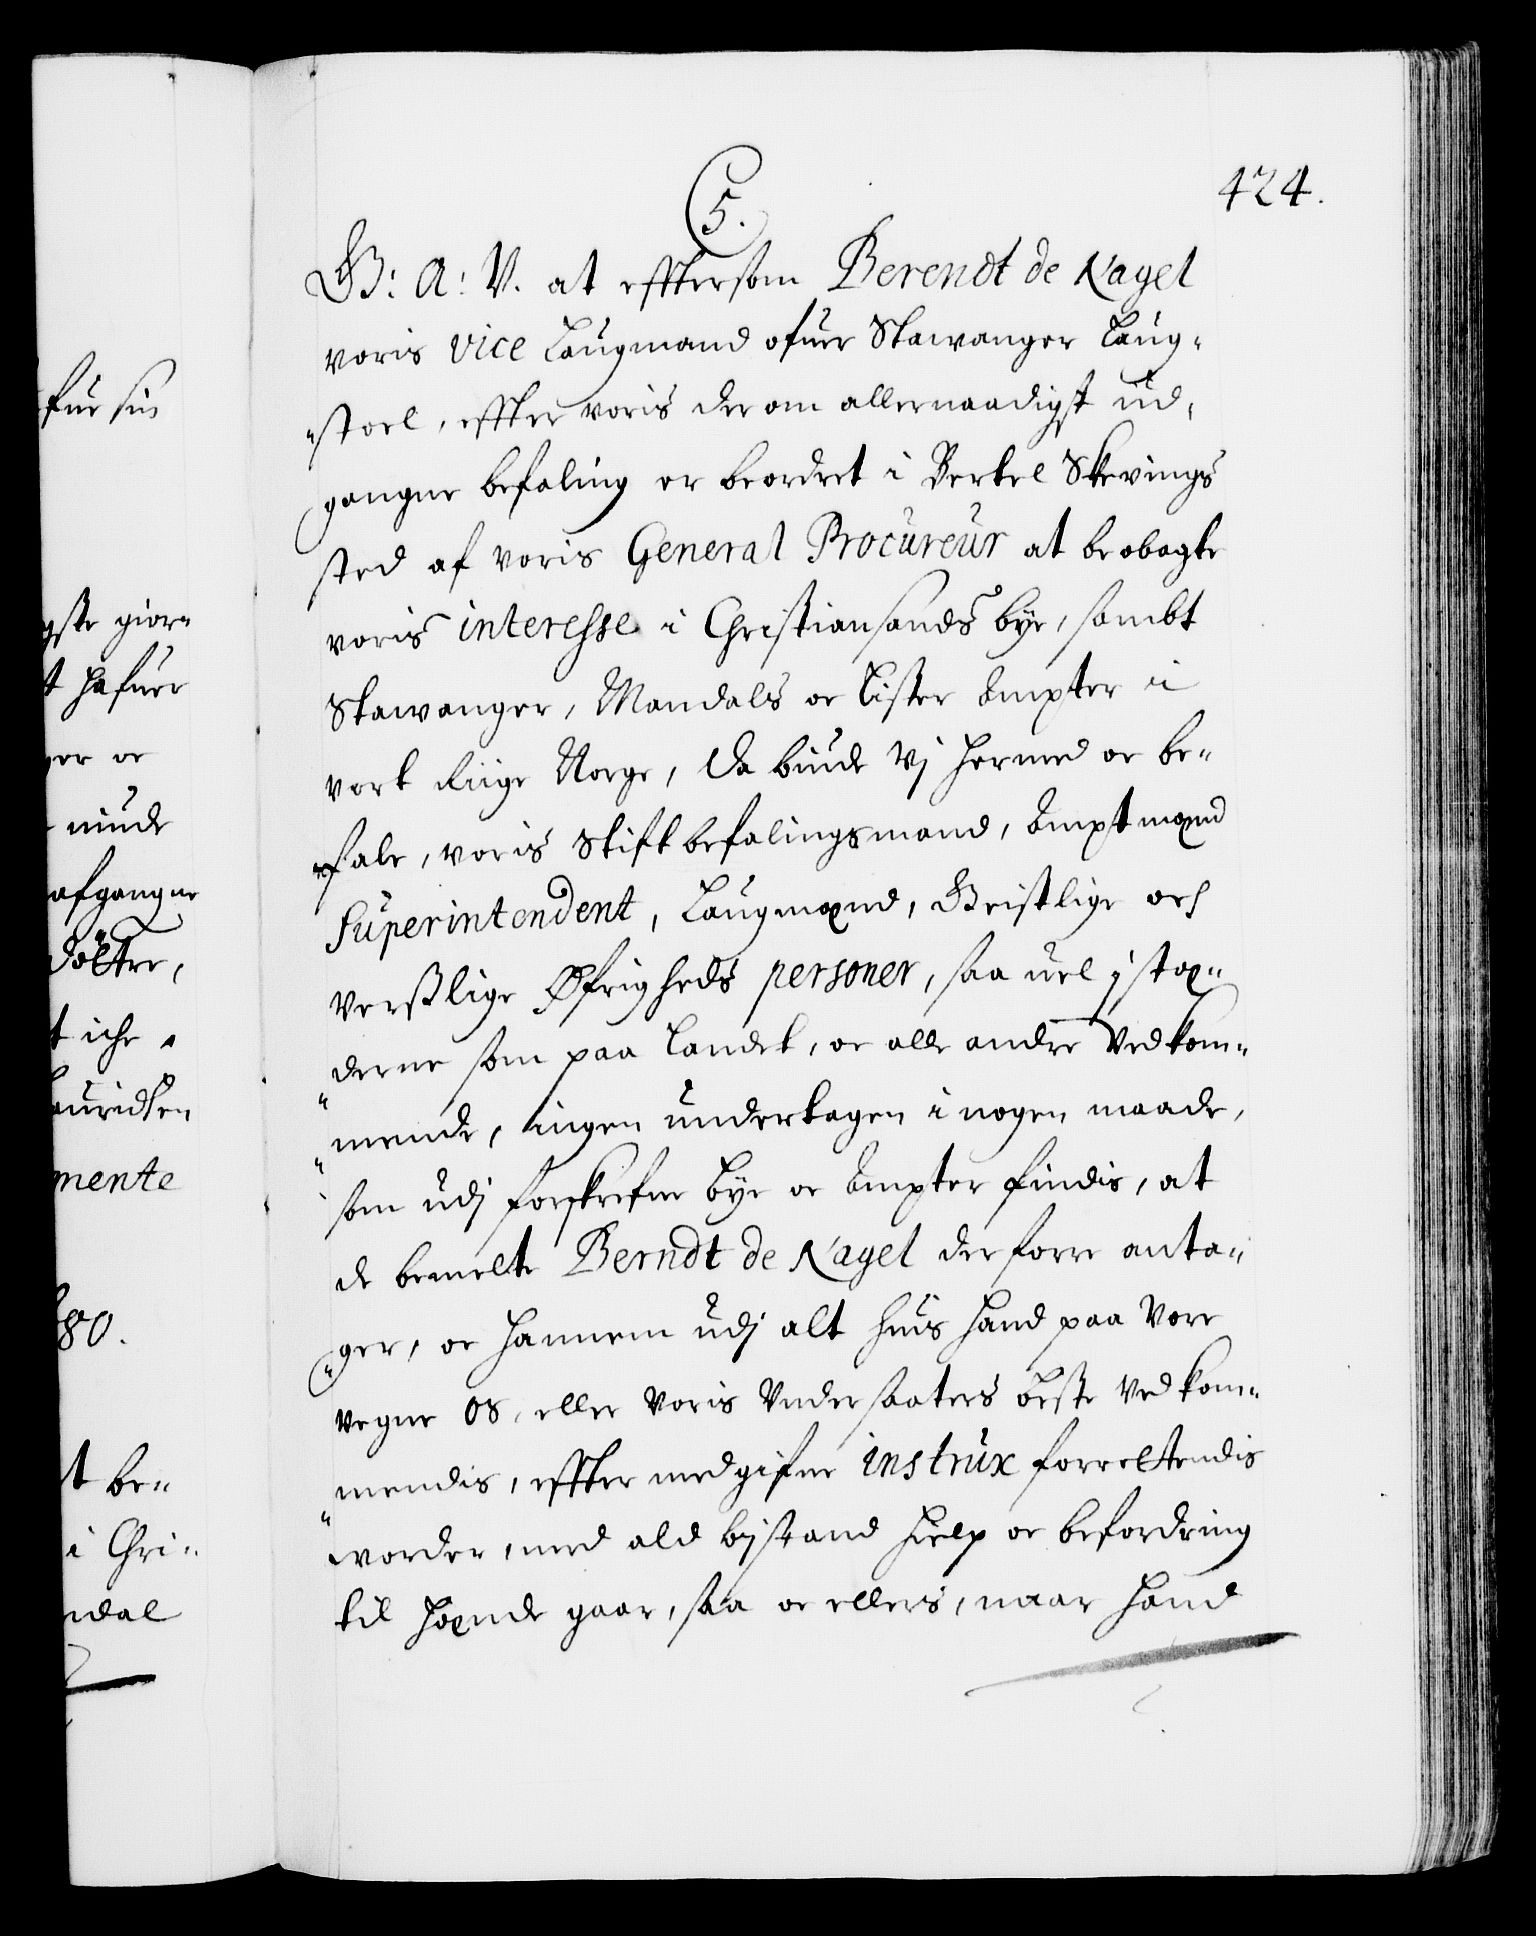 424.
5.
G: A: V. at efftersom Berendt de Nagel
voris vice Laugmand ofuer Stawanger Laug-
stoel, effter voris der om allernaadigst ud-
gangne befaling er beordret i Bertel Skevings
sted af voris General Procureur at beobagte
voris interesse i Christiansands bye, sambt
Stawanger, Mandals oc Lister Ampter i
vort Riige Norge, da biude Vj hermed oc be-
fale, voris Stiftbefalingsmand, Amptmænd
Superintendent, Laugmænd, Geistlige och
Verßlige Øfrigheds personer, saa uel j stæ-
derne som paa Landet, oc alle andre Vedkom-
mende, ingen undertagen i nogen maade,
som udj forskrefne bye oc Ampter findis, at
de bemelte Berndt de Nagel derforre anta-
ger, oc hannem udj alt huis hand paa Vore
vegne os, eller Voris Undersaaters beste vedkom-
mendis, effter medgifne instrux forrettendis
vorder, med ald bistand hielp oc befordring
til hænde gaar, saa oc ellers, naar hand
fue sin
gste gior-
t hafuer
ger oc
niude
afgangne
døttre,
t iche
auridsen
mente
80.
t be-
i Chri-
ndal